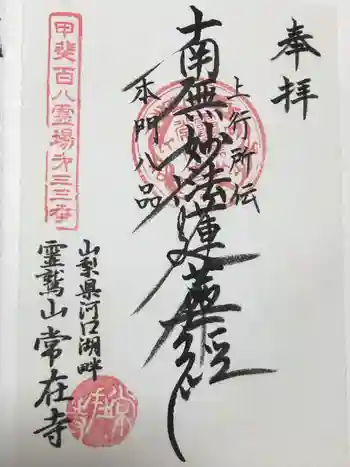 奉拝
上行所伝
南無妙法蓮華経
本門八品
甲斐百八霊場第三三番
山梨県河口湖畔
霊鷲山常在寺
常在寺